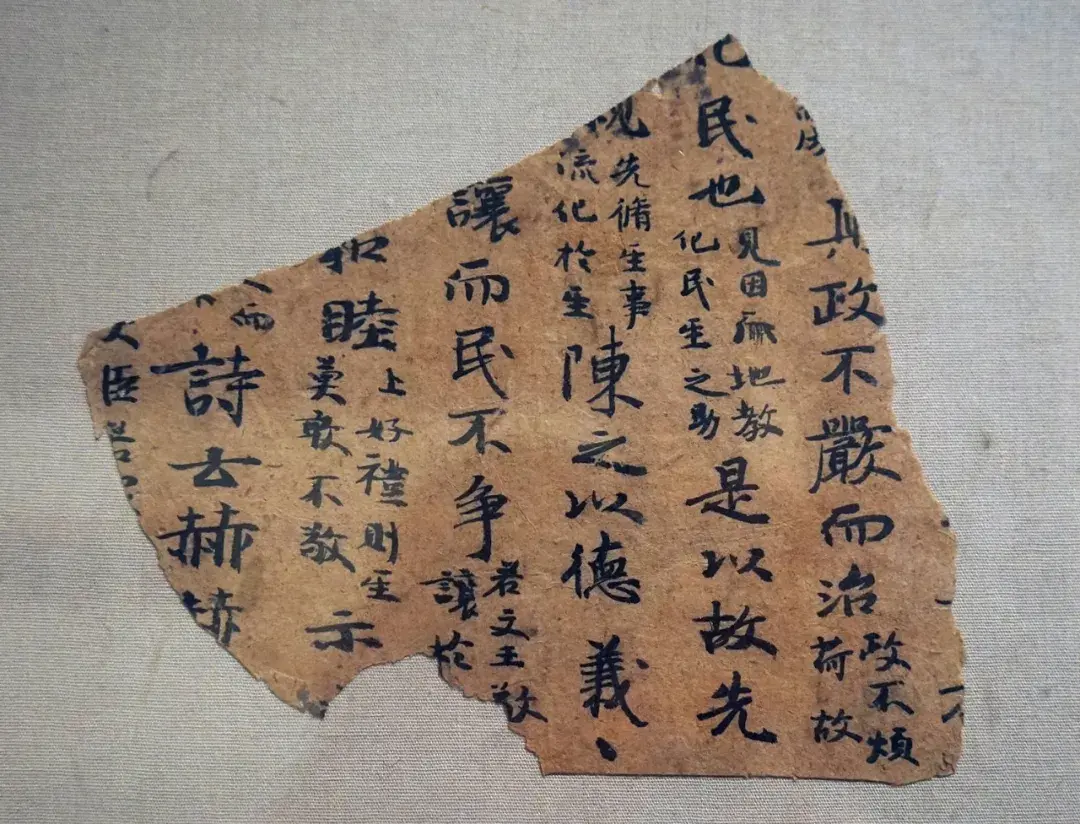 其政不嚴而治政不煩荷故
化民也見因𠀑地教化民𤯔之易是以故先
先脩𤯔事流化於𤯔陳之以德義、
讓而民不争若文王敬讓於
和睦上好禮則𤯔莫敢不敬示
而詩云赫赫
人臣